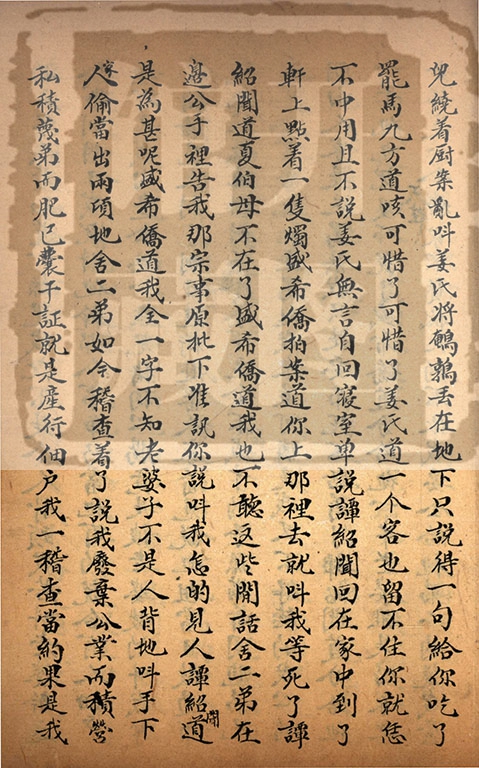 兒繞着厨案亂叫姜氏將鵪鶉丟在地下只說得一句給你吃了
罷馬九方道咳可惜了可惜了姜氏道一个客也留不住你就恁
不中用且不說姜氏無言自回寢室单說譚紹聞回在家中到了
軒上點着一隻燭盛希僑拍案道你上那裡去就叫我等死了譚
紹聞道夏伯母不在了盛希僑道我也不聽这些閒話舍二弟在
邉公手裡告我那宗事原批下准訊你說叫我怎的見人譚紹聞道
是為甚呢盛希僑道我全一字不知老婆子不是人背地叫手下
家人偷當出兩項地舍二弟如今稽查着了說我廢棄公業而積營
私積蔑弟而肥己囊干証就是産行佃户我一稽查當約果是我